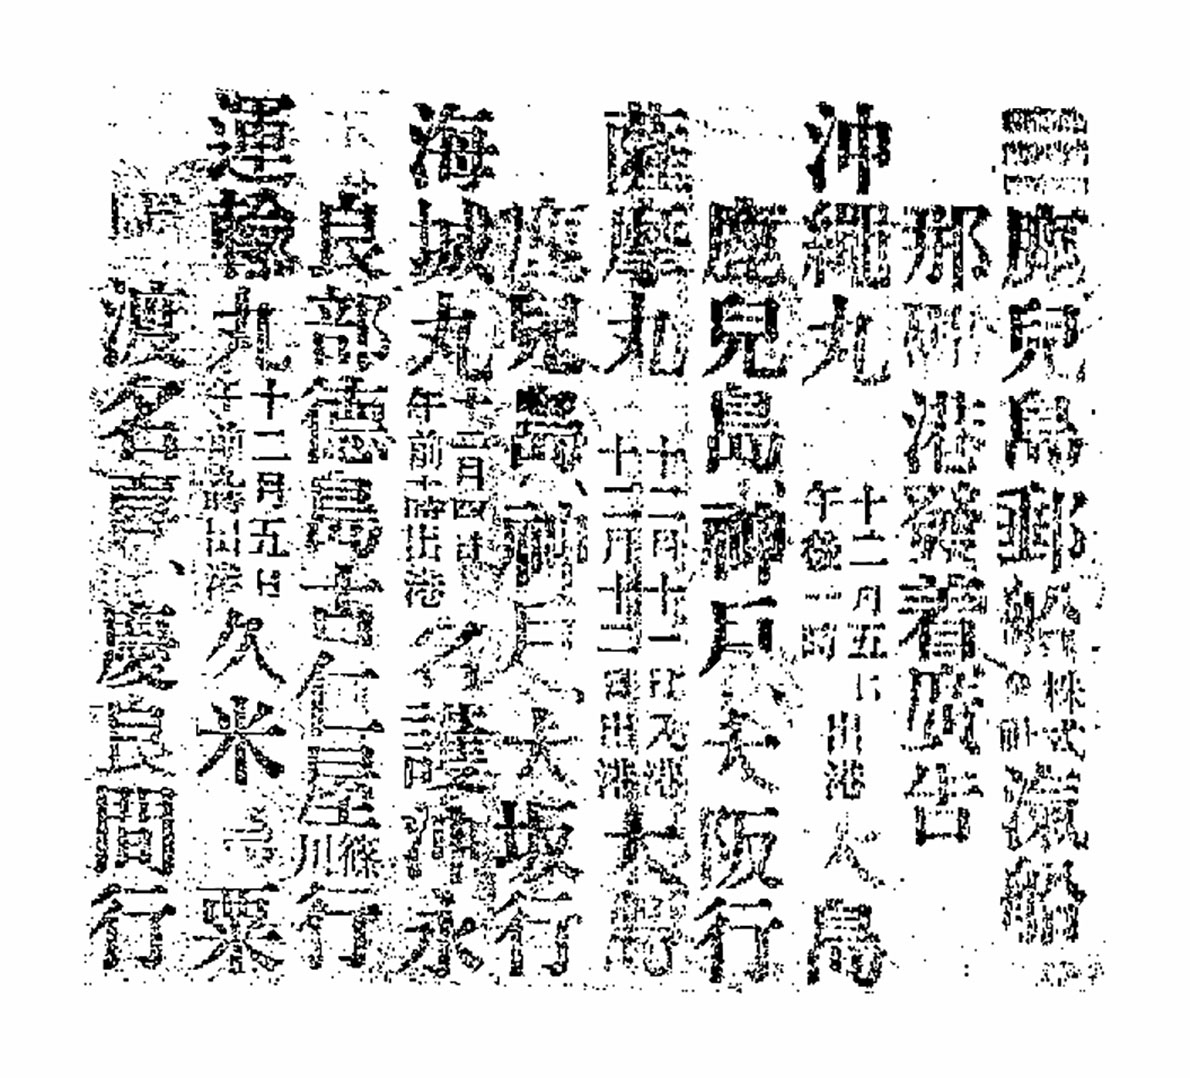 鹿兒島郵船株式滊船
那覇港發着廣告
沖繩丸 十二月五日午後一時出港大島
鹿兒島神戸大阪行
薩摩丸 十二月十一日入港十二月十三日出港大島
鹿兒島、神戸大坂行
海城丸 十二月四日午前十時出港名護永
良部德之島古仁屋篠川行
運輸丸 十二月五日午前出港久米島粟
渡名喜、慶良間行